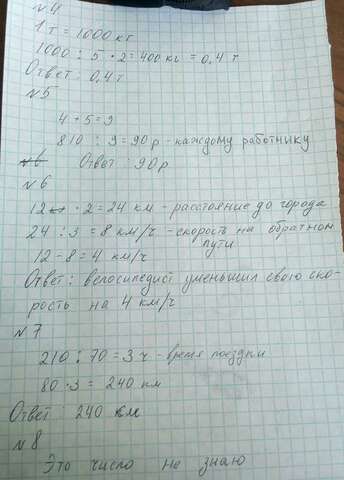 №4
1 т = 1000 кг
1000 : 5 · 2 = 400 кг = 0,4 т
Ответ: 0,4 т
№5
4 + 5 = 9
810 : 9 = 90 р - каждому работнику
№6 Ответ: 90 р
№6
12 · 2 = 24 км - расстояние до города
24 : 3 = 8 км/ч - скорость на обратном
пути
12 - 8 = 4 км/ч
Ответ: велосипедист уменьшил свою ско-
рость на 4 км/ч
№7
210 : 70 = 3 ч - время поездки
80 · 3 = 240 км
Ответ: 240 км
№8
Это число не знаю